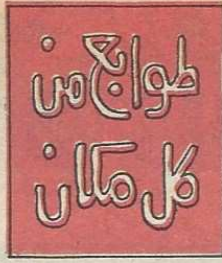 طوابع من
كل مكان